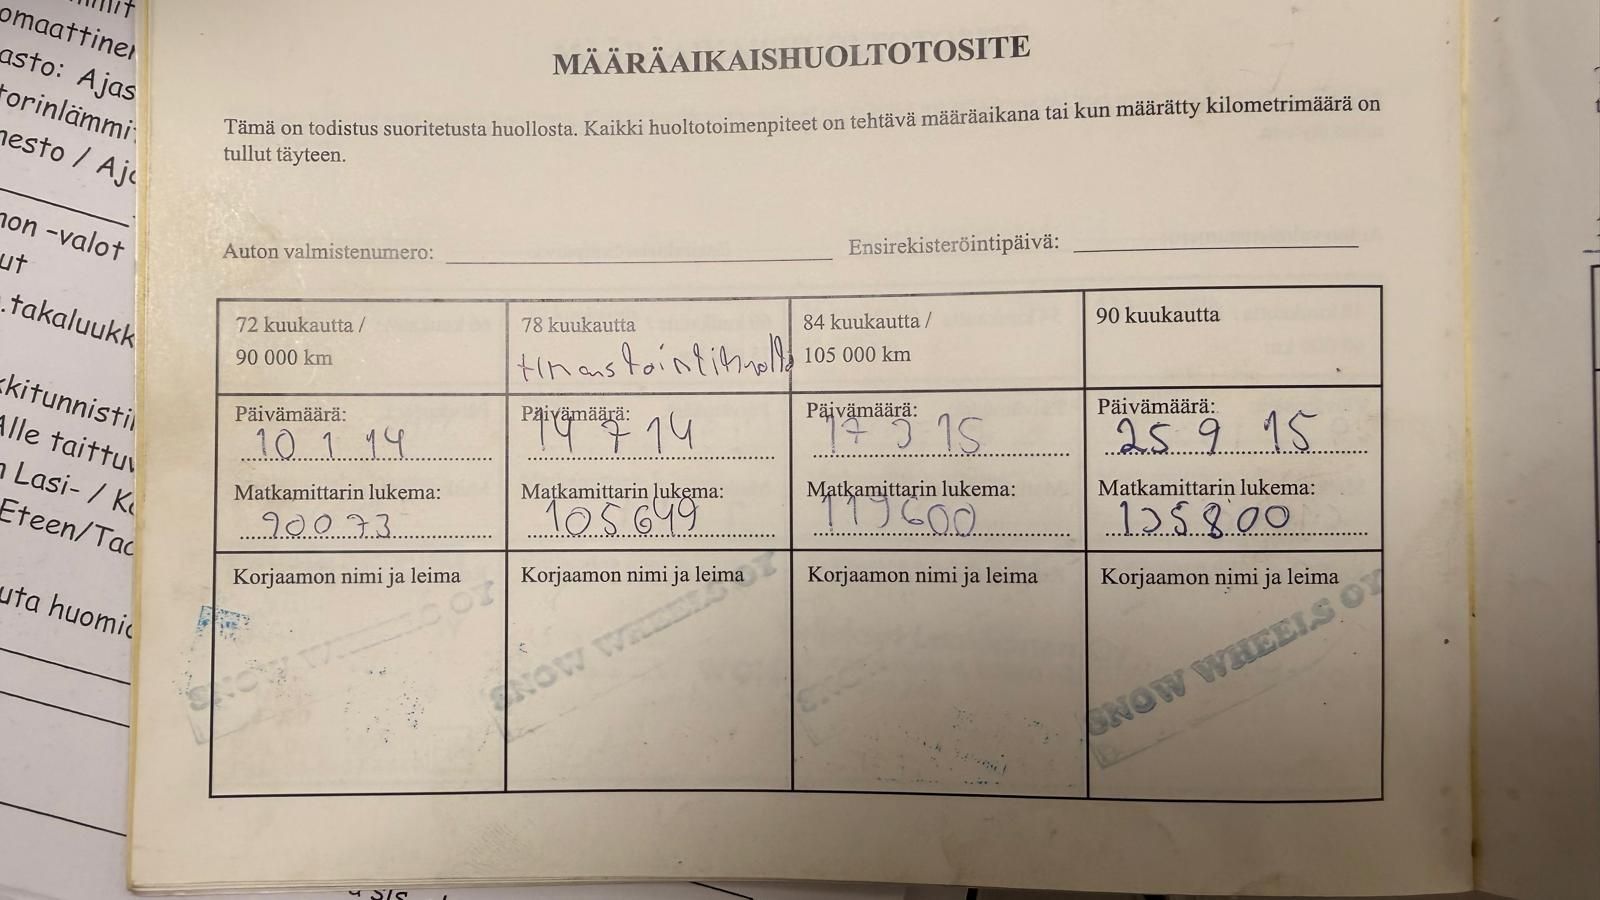 omaattinen
asto: Ajas
torinlämmi
nesto / Aja
non -valot
ut
.takaluukk
kkitunnistin
Alle taittuv
n Lasi- / Ko
Eteen/Tac
uta huomio
MÄÄRÄAIKAISHUOLTOTOSITE
Tämä on todistus suoritetusta huollosta. Kaikki huoltotoimenpiteet on tehtävä määräaikana tai kun määrätty kilometrimäärä on
tullut täyteen.
Auton valmistenumero: Ensirekisteröintipäivä:
72 kuukautta /
90 000 km
78 kuukautta
84 kuukautta /
105 000 km
90 kuukautta
Päivämäärä:
10 1 14
Päivämäärä:
14 7 14
Päivämäärä:
17 3 15
Päivämäärä:
25 9 15
Matkamittarin lukema:
90073
Matkamittarin lukema:
105649
Matkamittarin lukema:
119600
Matkamittarin lukema:
135800
Korjaamon nimi ja leima
SNOW WHEELS OY
Korjaamon nimi ja leima
SNOW WHEELS OY
Korjaamon nimi ja leima
SNOW
Korjaamon nimi ja leima
SNOW WHEELS OY